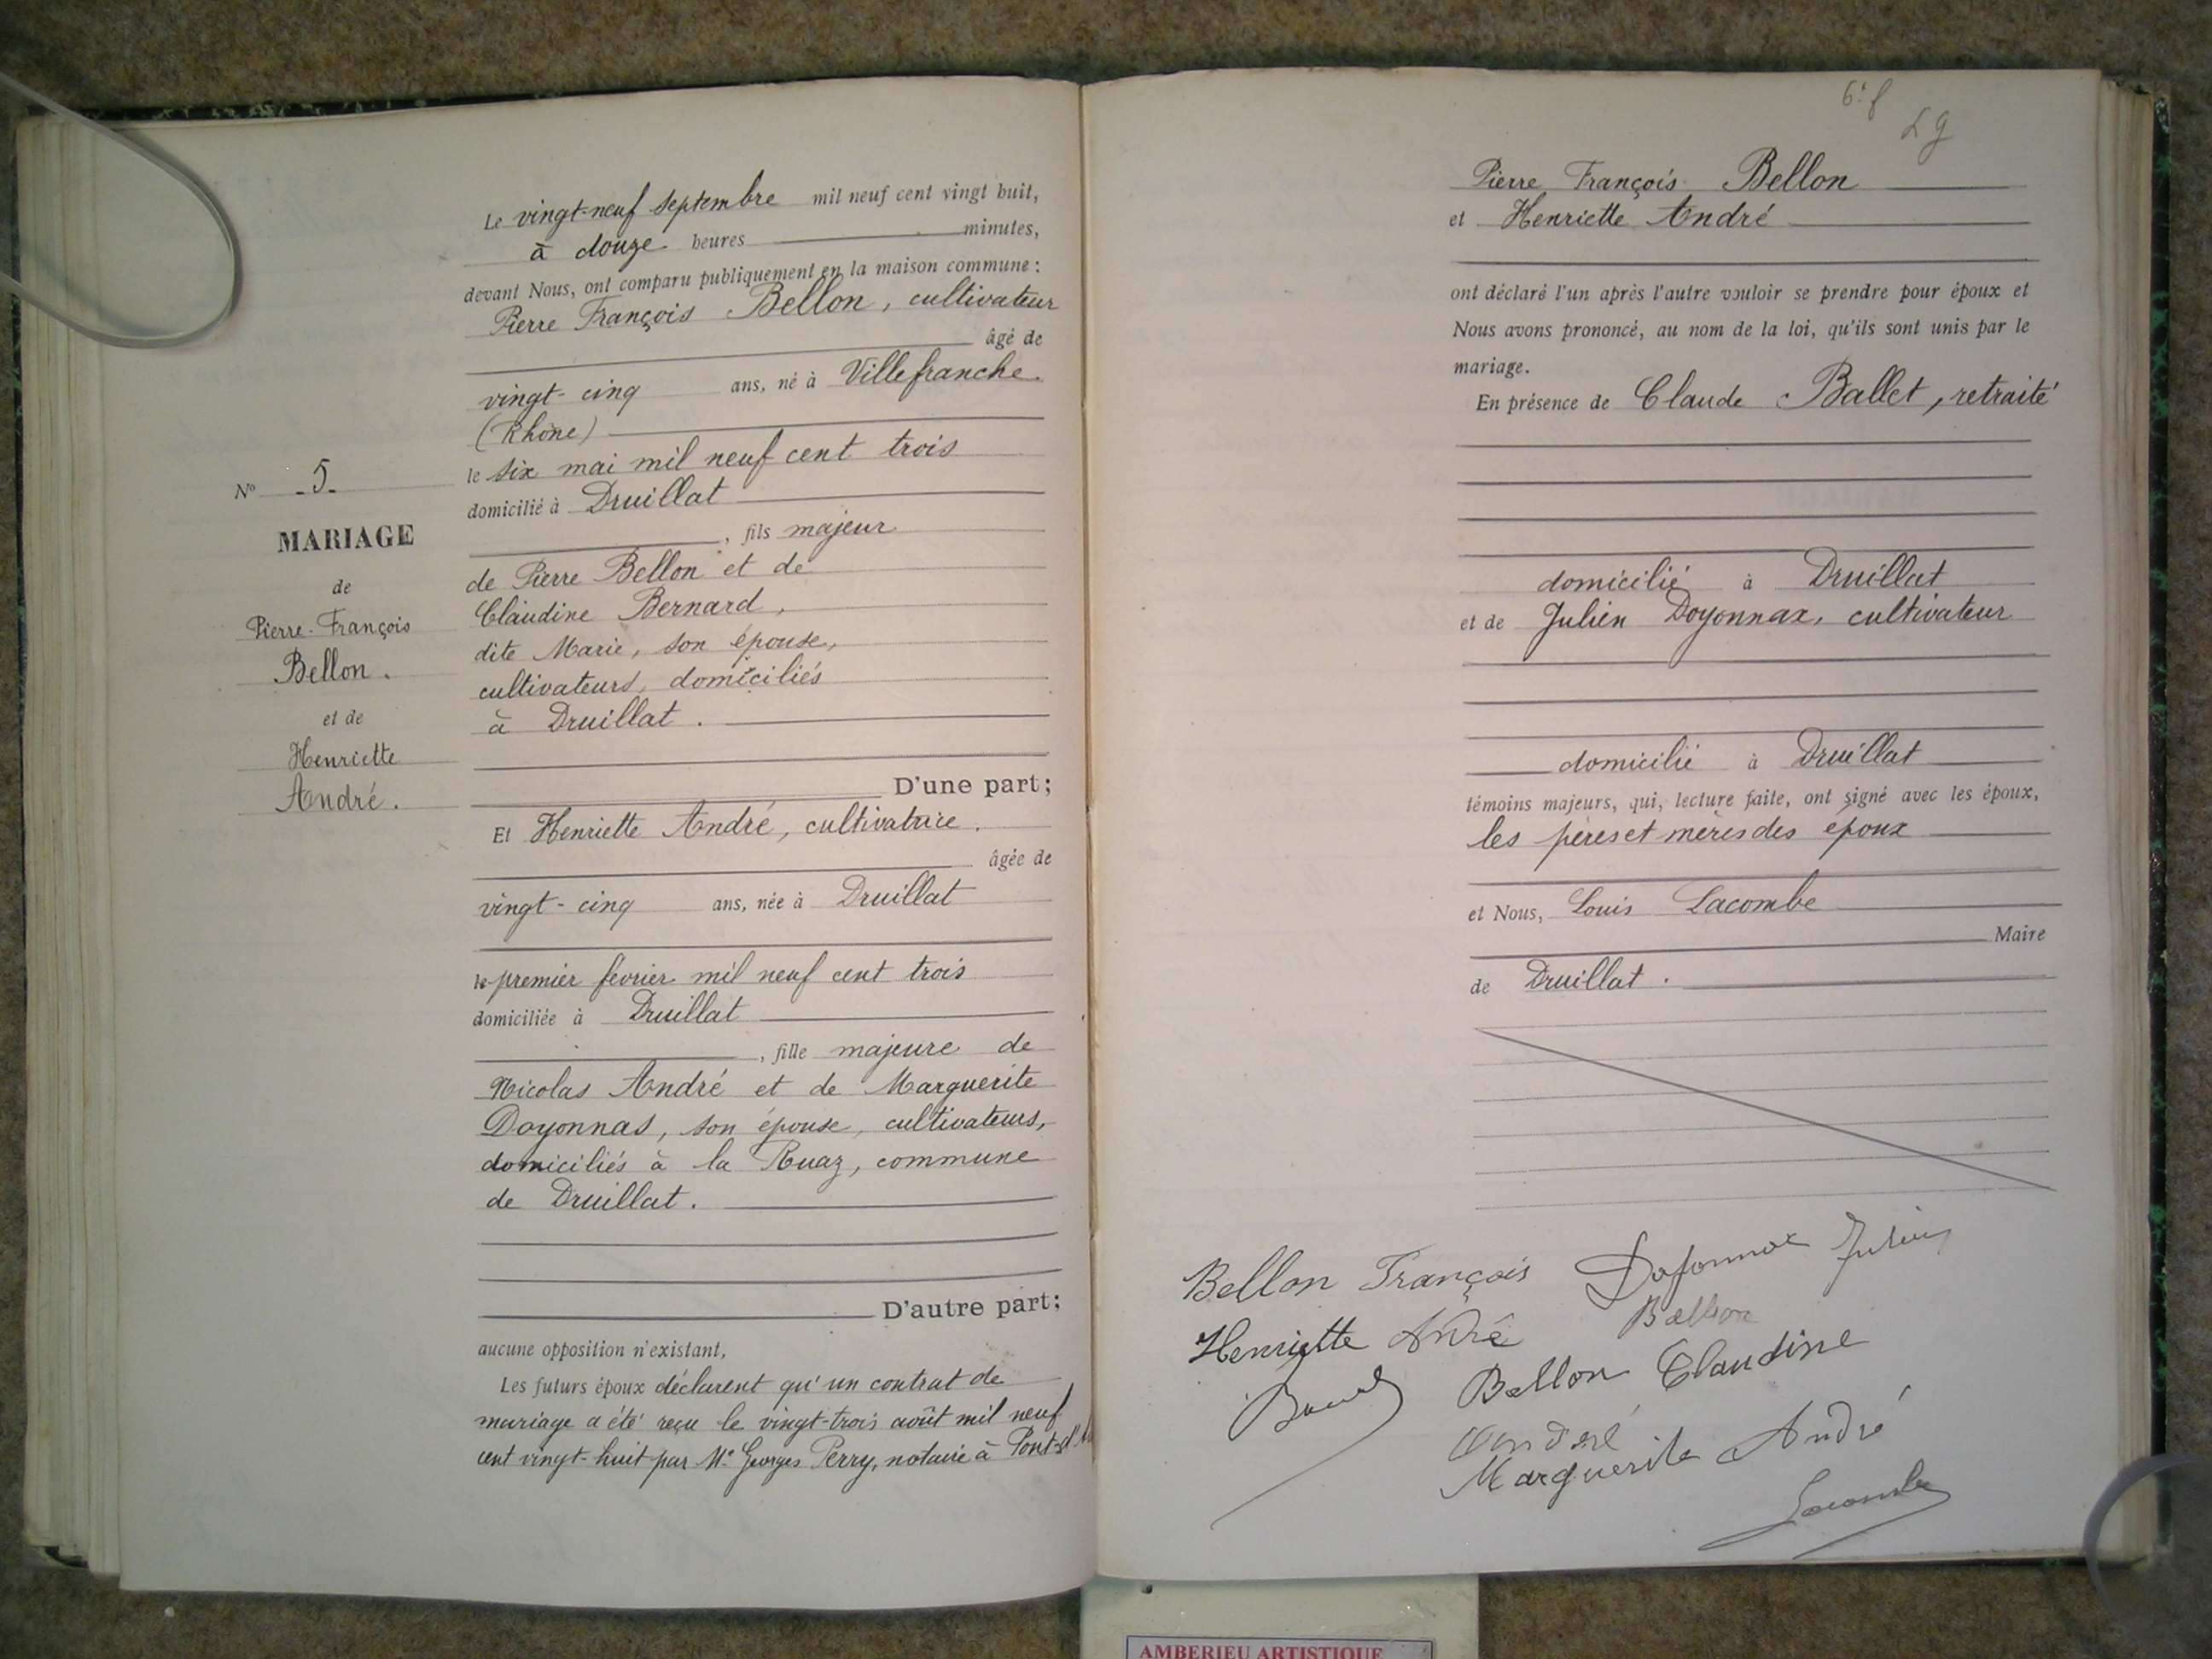 Le vingt-neuf septembre mil neuf cent vingt huit,
à douze heures minutes,
devant Nous, ont comparu publiquement en la maison commune :
Pierre François Bellon, cultivateur
âgé de
vingt-cinq ans, né à Villefranche
(Rhône)
le six mai mil neuf cent trois
domicilié à Druillat
, fils majeur
de Pierre Bellon et de
Claudine Bernard,
dite Marie, son épouse,
cultivateurs, domiciliés
à Druillat.
D'une part;
Et Henriette André, cultivatrice.
âgée de
vingt-cinq ans, née à Druillat
le premier février mil neuf cent trois
domiciliée à Druillat
, fille majeure de
Nicolas André et de Marguerite
Doyonnas, son épouse, cultivateurs,
domiciliés à la Ruaz, commune
de Druillat.
D'autre part;
aucune opposition n'existant,
Les futurs époux déclarent qu'un contrat de
mariage a été reçu le vingt-trois août mil neuf
cent vingt-huit par Me Georges Perry, notaire à Pont-d'
No -5-
MARIAGE
de
Pierre-François
Bellon.
et de
Henriette
André.
Pierre François Bellon
et Henriette André
ont déclaré l'un après l'autre vouloir se prendre pour époux et
Nous avons prononcé, au nom de la loi, qu'ils sont unis par le
mariage.
En présence de Claude Ballet, retraité
domicilié à Druillat
et de Julien Doyonnax, cultivateur
domicilié à Druillat
témoins majeurs, qui, lecture faite, ont signé avec les époux,
les pères et mères des époux
et Nous, Louis Lacombe
Maire
de Druillat.
Bellon François
Julien
Henriette André
Bellon
Bellon Claudine
André
Marguerite André
Lacombe
AMBERIEU ARTISTIQUE